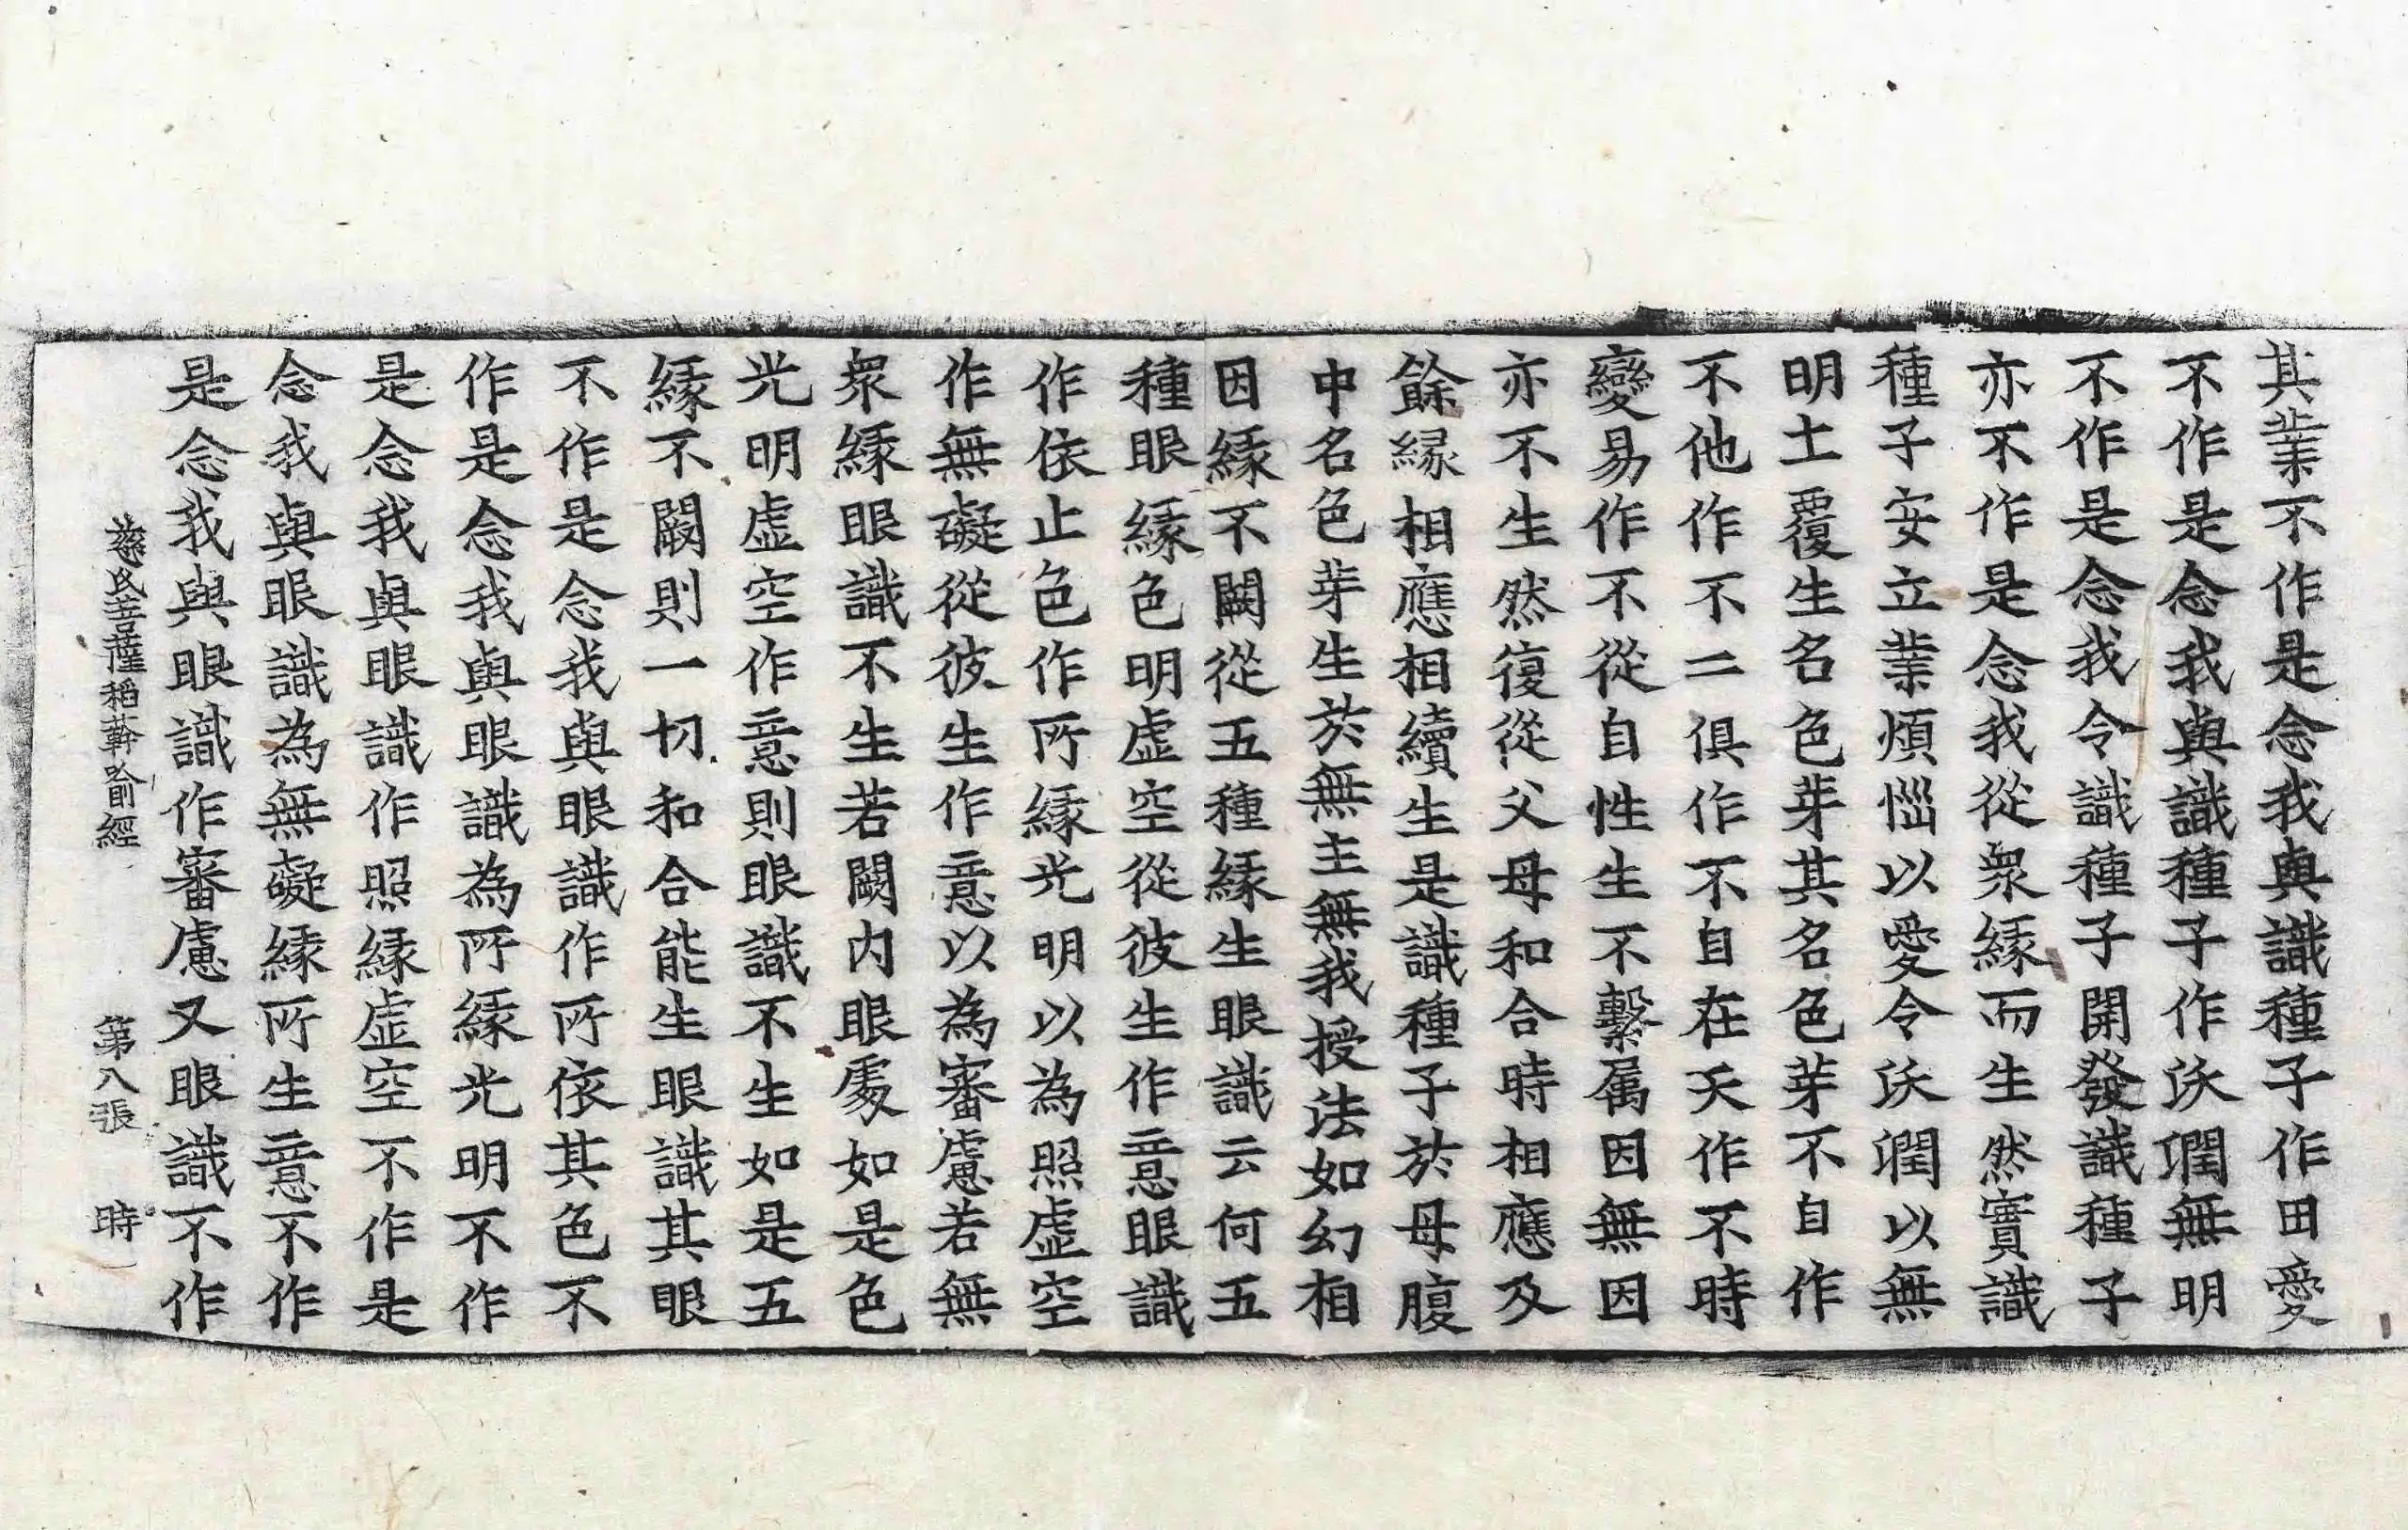 其業不作是念我與識種子作田愛
不作是念我與識種子作沃潤無明
不作是念我令識種子開發識種子
亦不作是念我從衆緣而生然實識
種子安立業煩惱以愛令沃潤以無
明土覆生名色芽其名色芽不自作
不他作不二俱作不自在天作不時
變易作不從自性生不繫属因無因
亦不生然復從父母和合時相應及
餘緣相應相續生是識種子於母腹
中名色芽生於無主無我授法如幻相
因緣不闕從五種緣生眼識云何五
種眼緣色明虛空從彼生作意眼識
作依止色作所緣光明以為照虛空
作無礙從彼生作意以為審慮若無
衆緣眼識不生若闕內眼處如是色
光明虛空作意則眼識不生如是五
緣不闕則一切和合能生眼識其眼
不作是念我與眼識作所依其色不
作是念我與眼識為所緣光明不作
是念我與眼識作照緣虛空不作是
念我與眼識為無礙緣所生意不作
是念我與眼識作審慮又眼識不作
慈氏菩薩稻𦼮喻經 第八張 時